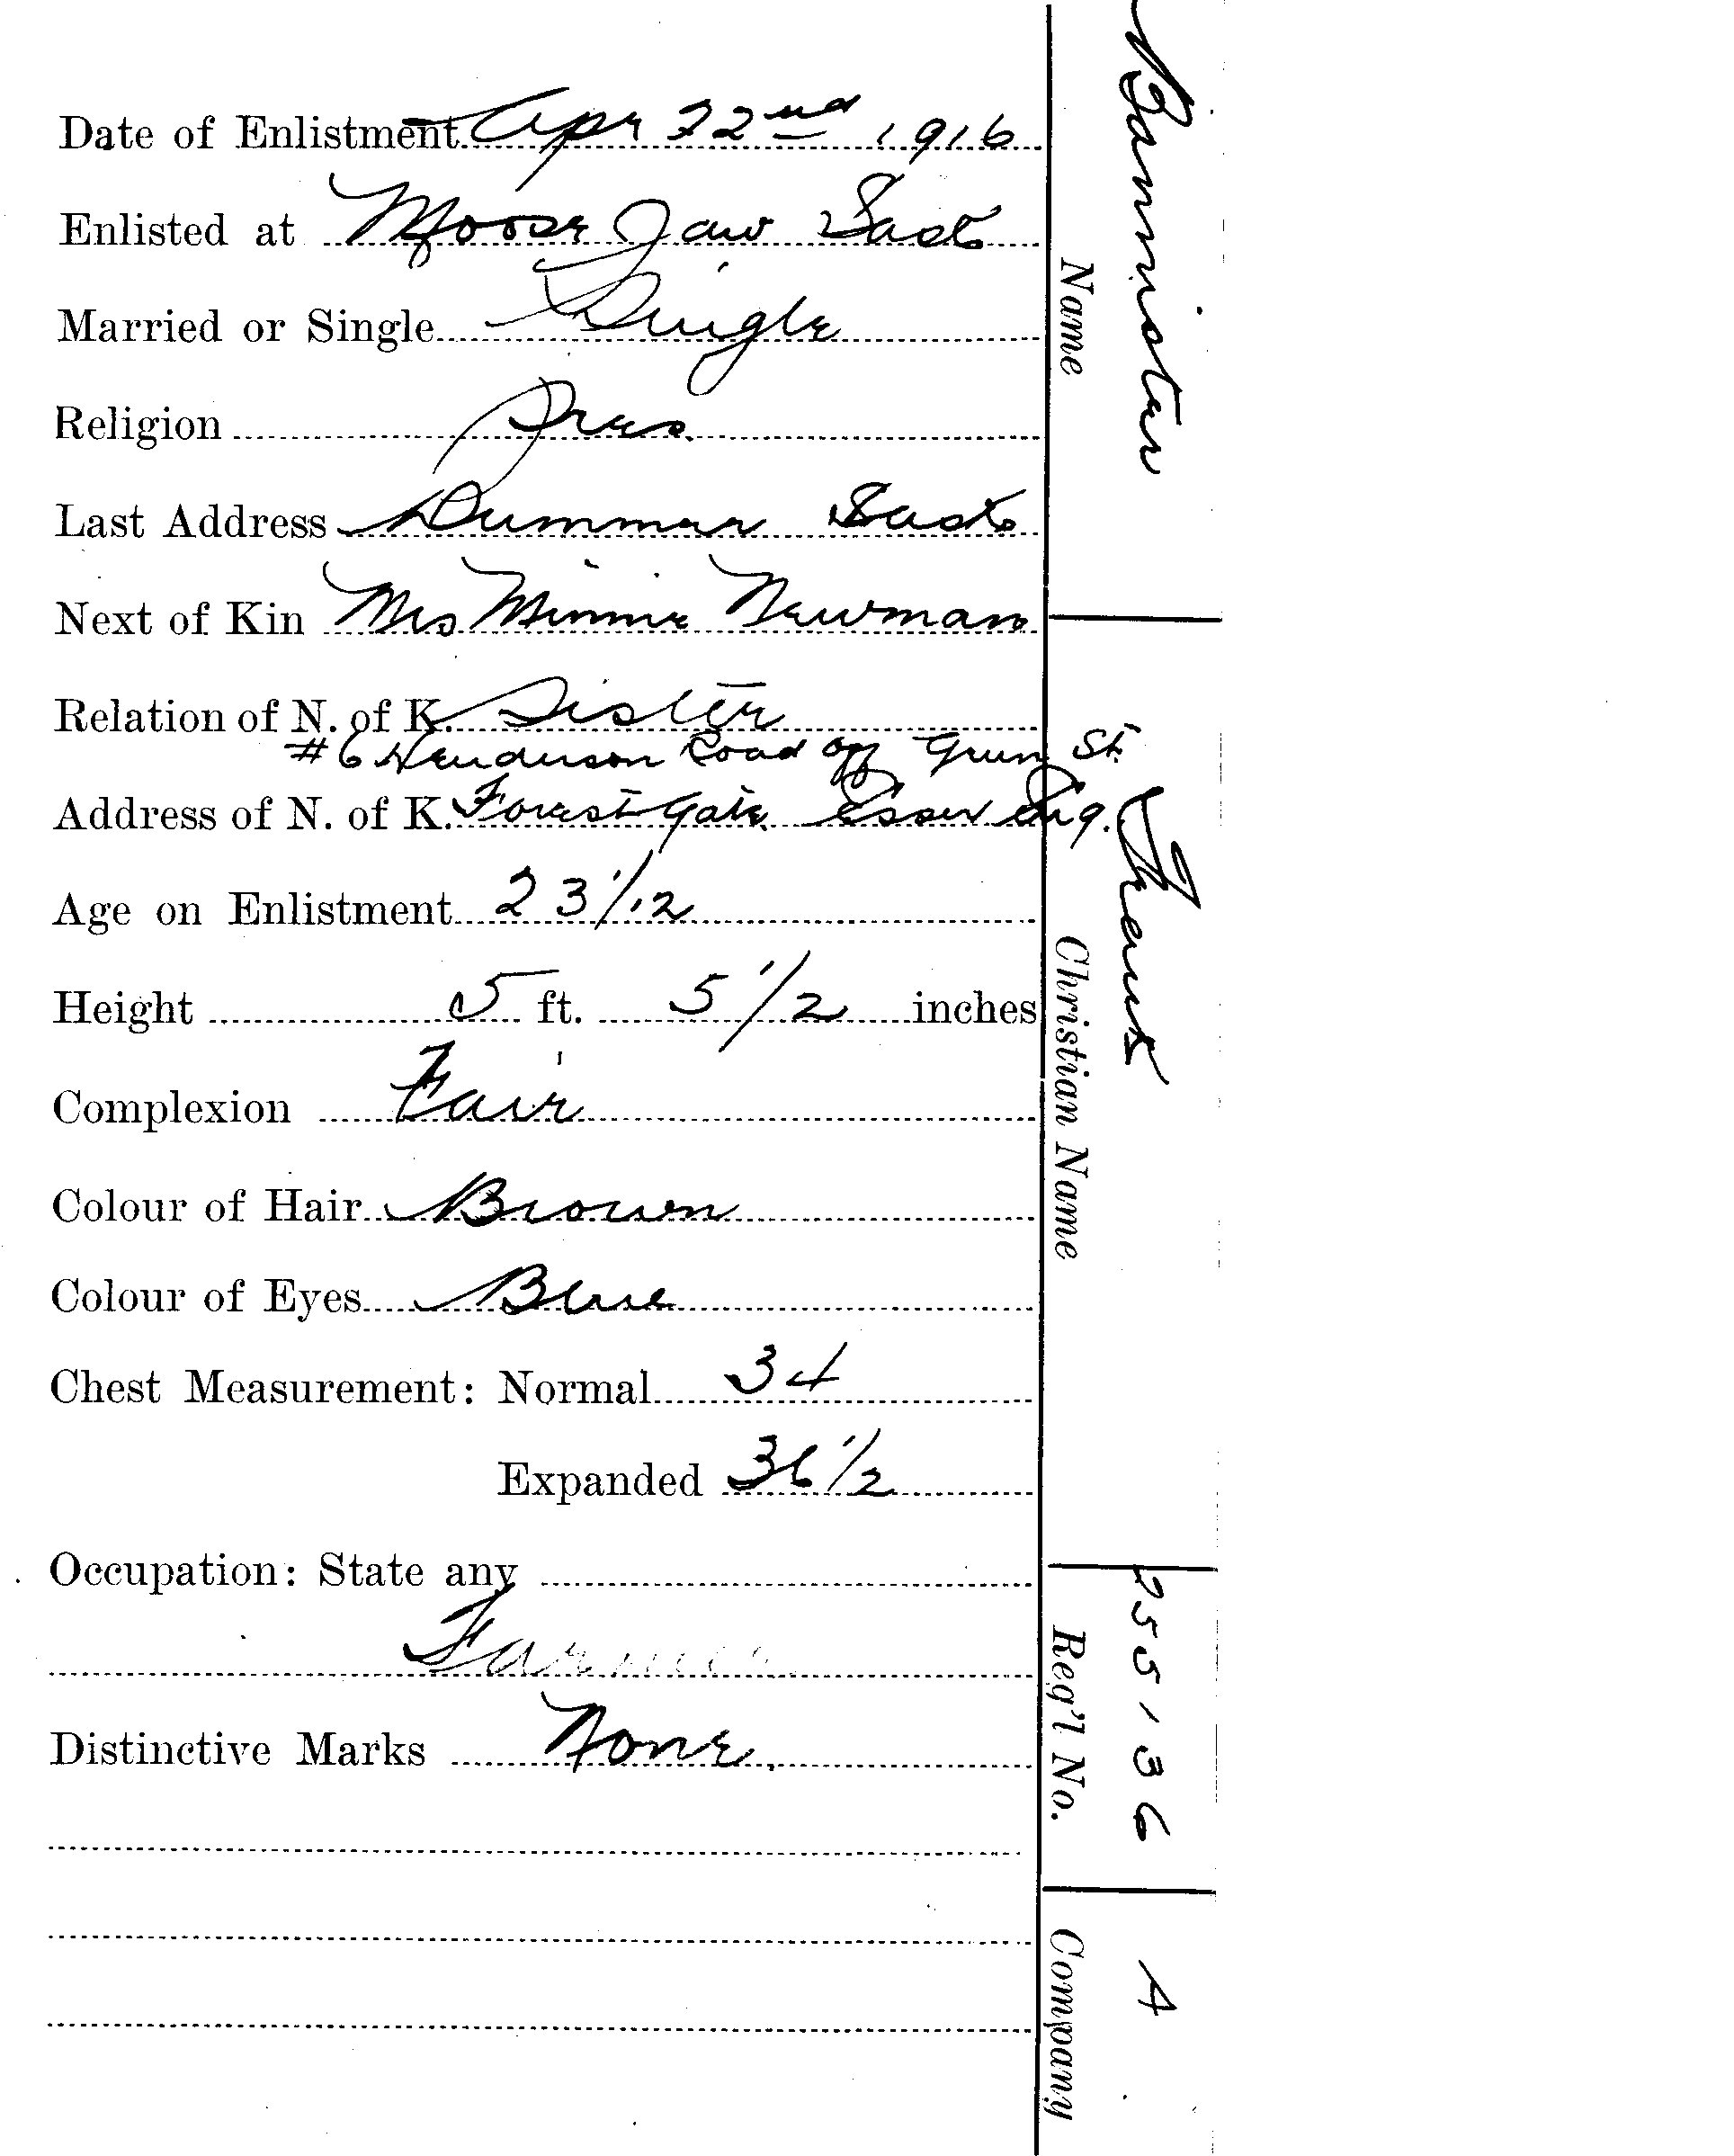 Date of Enlistment Apr 22nd 1916
Enlisted at Moose Jaw Sask
Married or Single Single
Religion Pres.
Last Address Dummer Sask
Next of Kin Mrs Minnie Newman
Relation of N. of K. Sister
#6 Henderson Road off Green St.
Address of N. of K. Forest Gate Essex Eng.
Age on Enlistment 23 1/12
Height 5 ft. 5 1/2 inches
Complexion Fair
Colour of Hair Brown
Colour of Eyes Blue
Chest Measurement: Normal 34
Expanded 36 1/2
Occupation: State any
Farmer
Distinctive Marks None.
Name Bannister
Christian Name Frank
Reg'l No. 255136
Company A